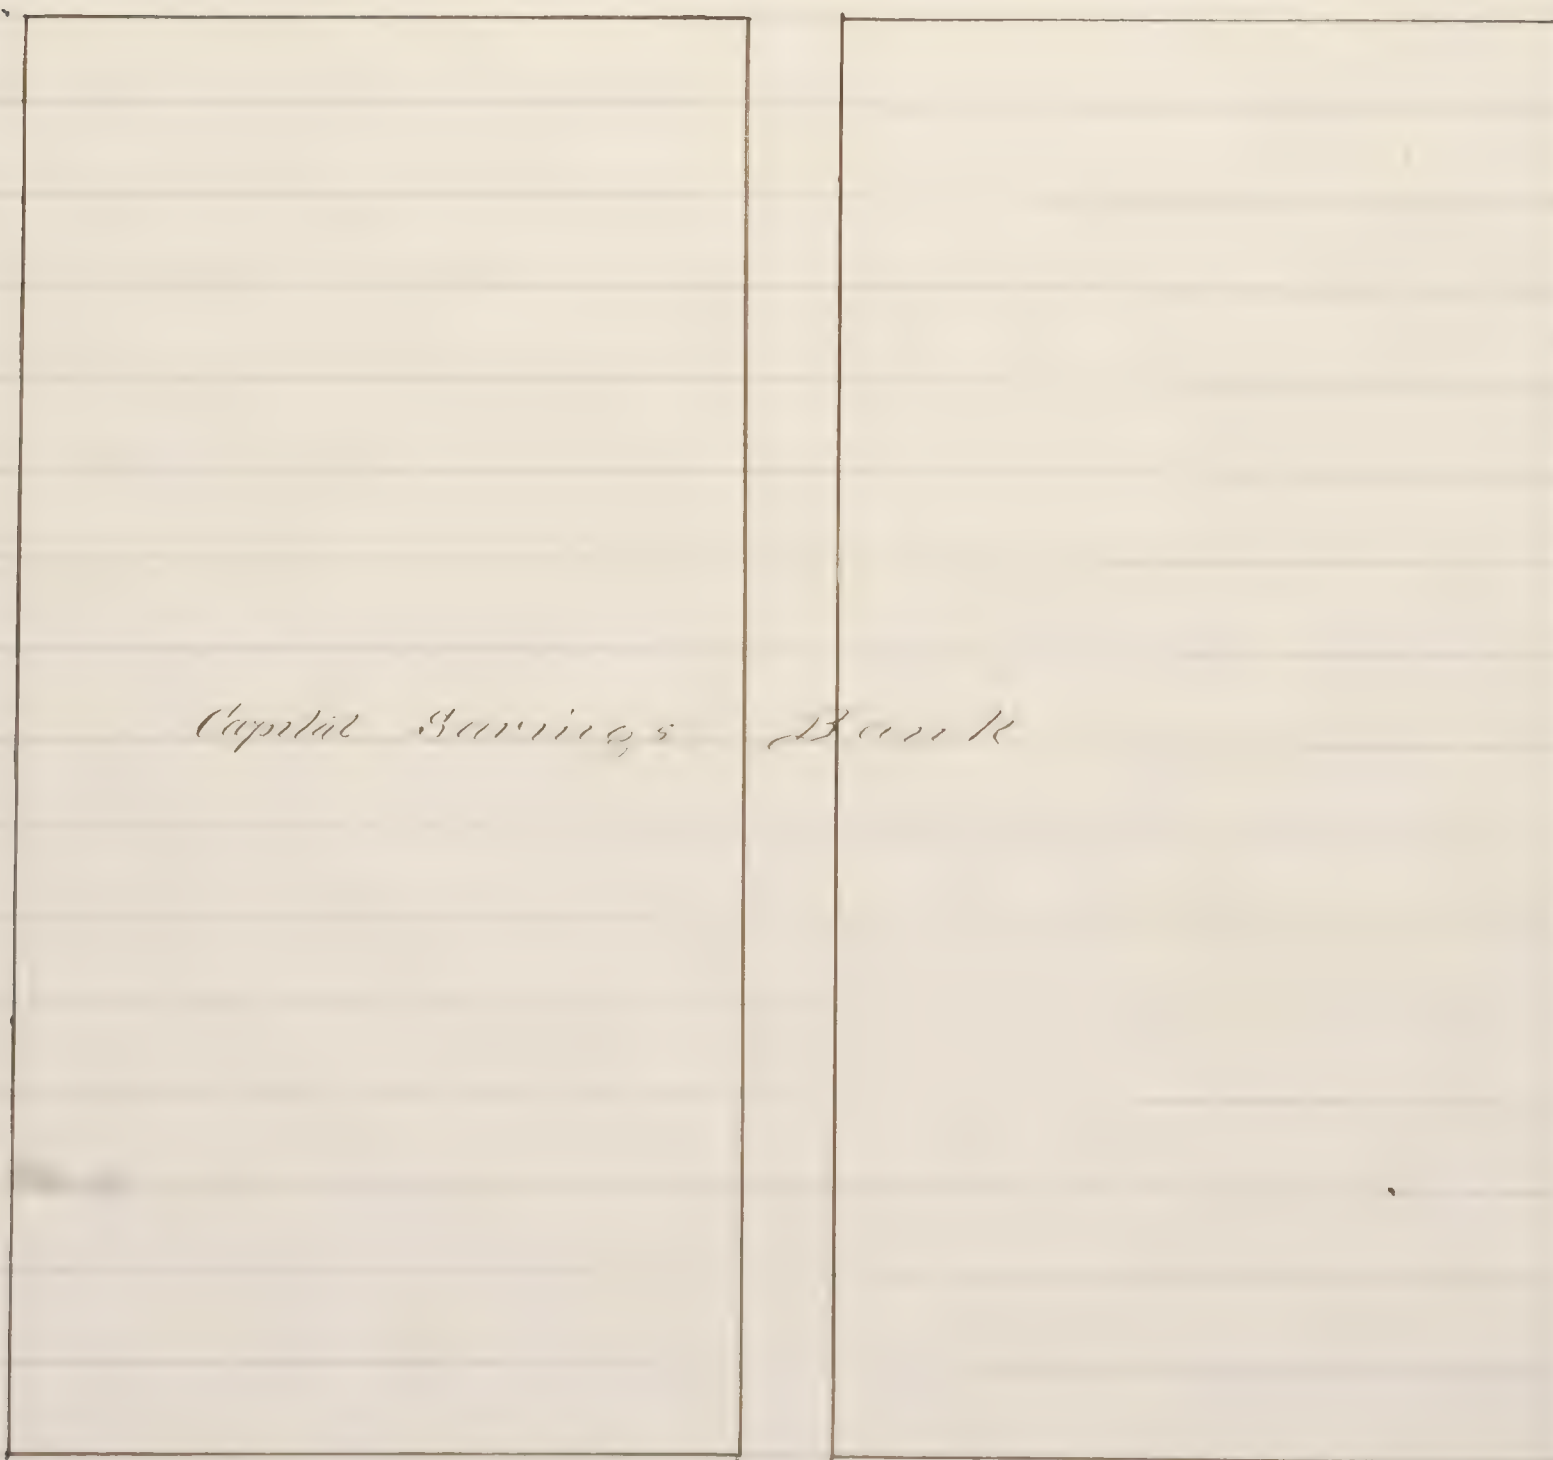 Capital Savings Bank